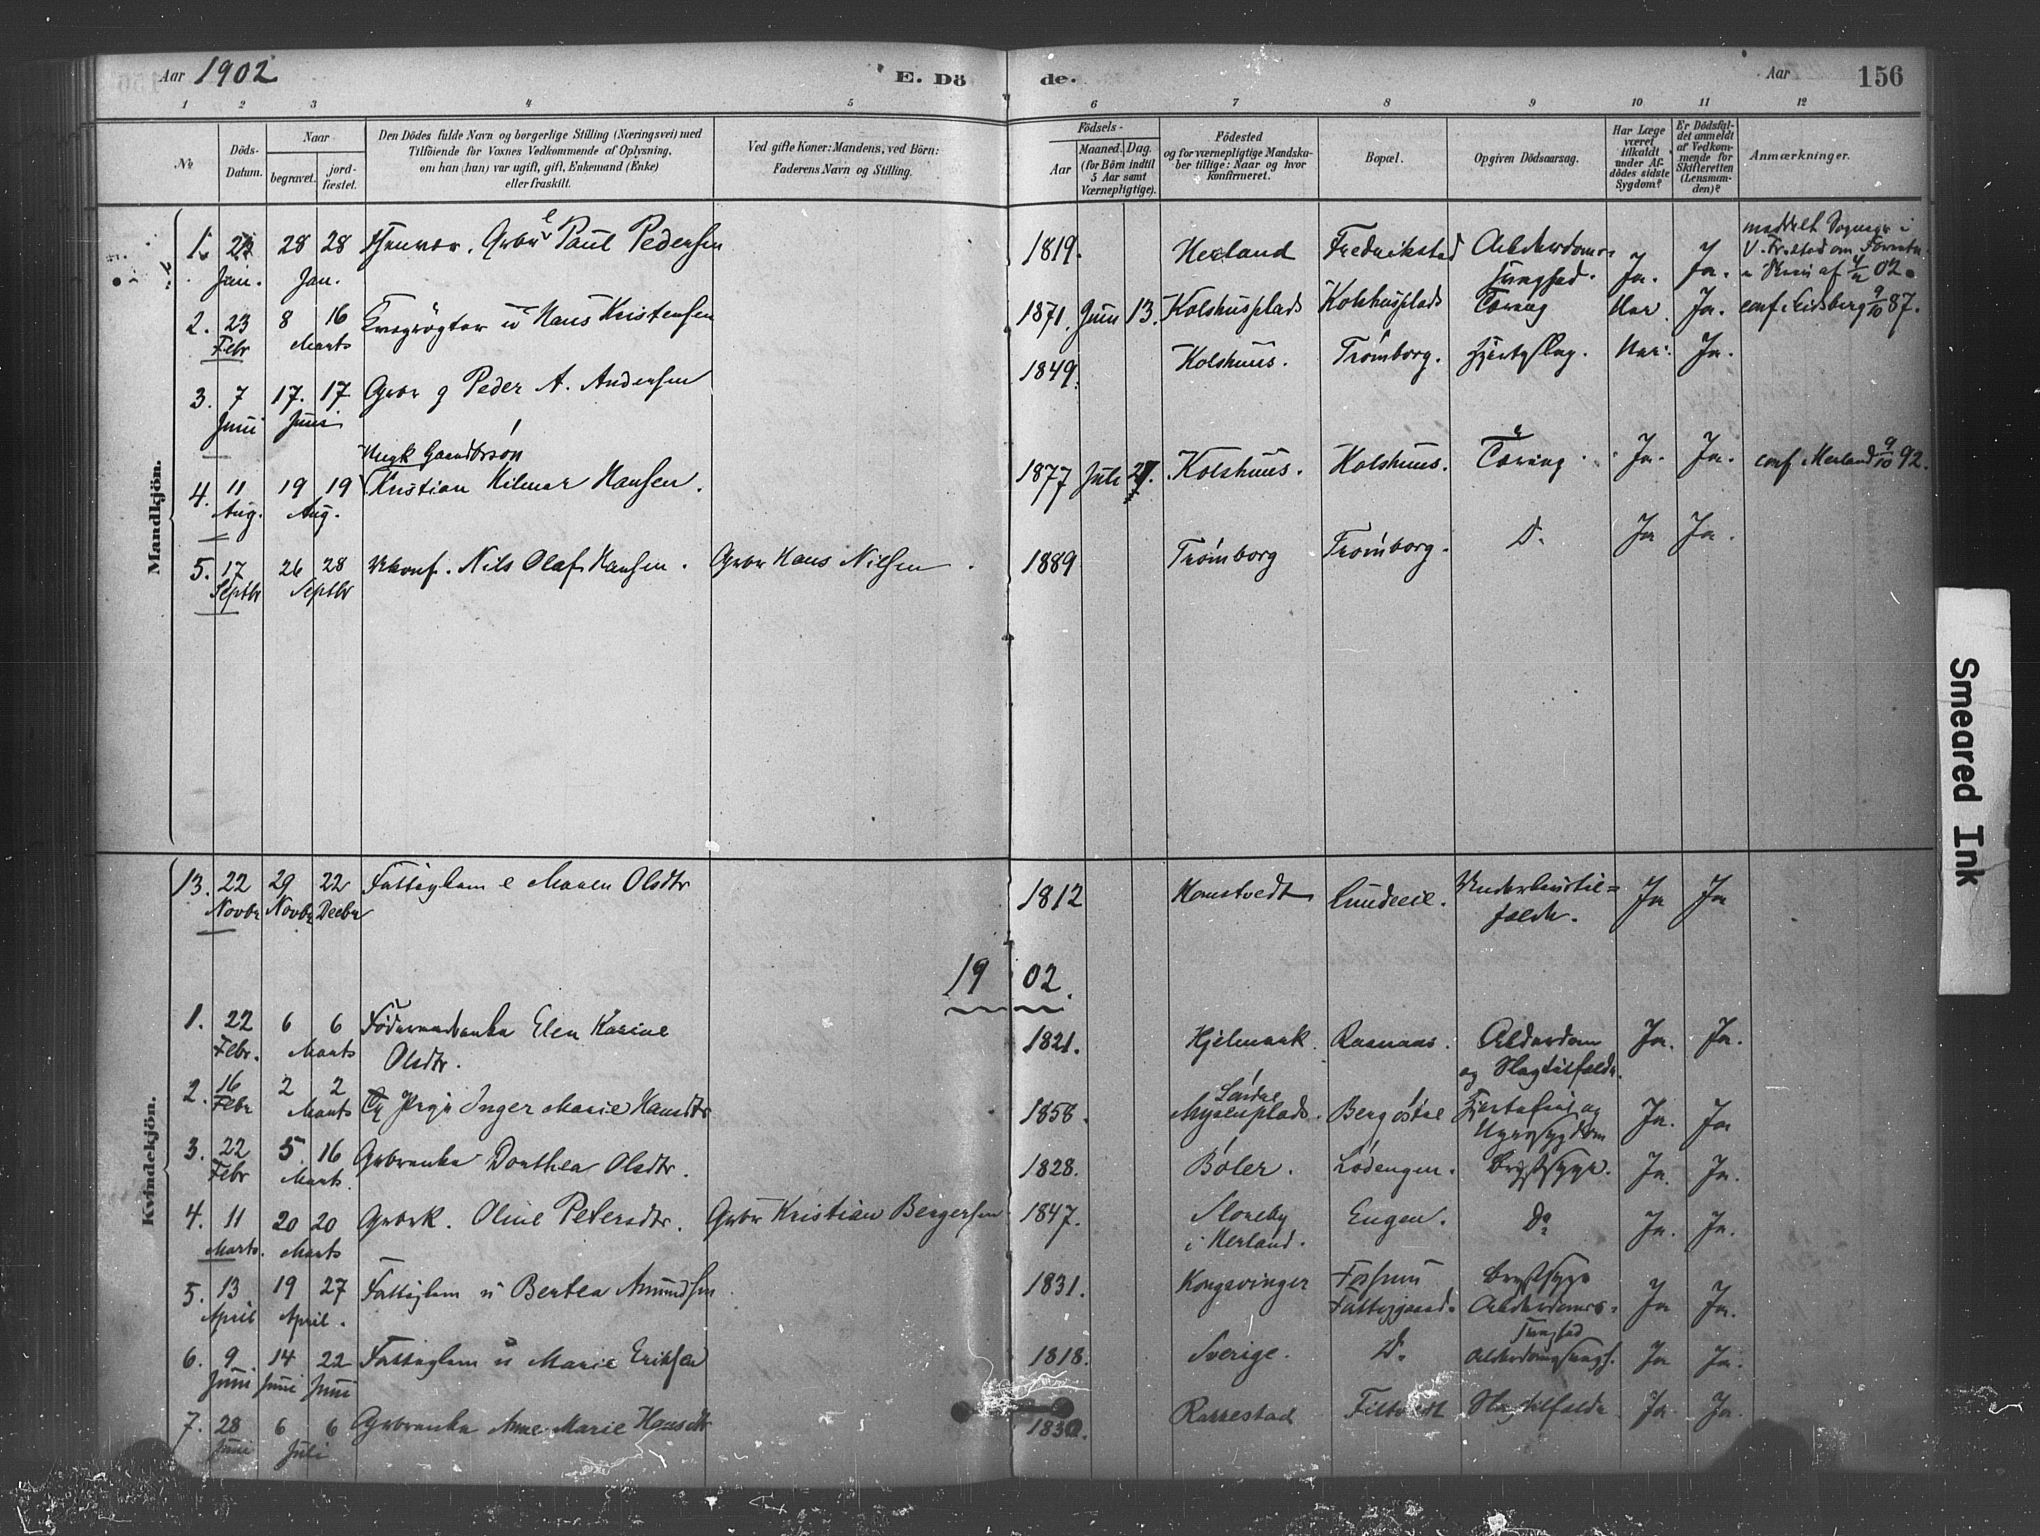 Aar 1902
E. Dö
de.
Aar
156
1 2 3 4 5 6 7 8 9 10 11 12
No
Döds-Datum.
Naar
begravet.
jord-fæstet.
Den Dödes fulde Navn og borgerlige Stilling (Næringsvei) med
Tilföiende for Voxnes Vedkommende af Oplysning,
om han (hun) var ugift, gift, Enkemand (Enke)
eller fraskilt.
Ved gifte Koner: Mandens, ved Börn:
Faderens Navn og Stilling.
Födsels-
Aar
Maaned. Dag.
(for Börn indtil
5 Aar samt
Værnepligtige).
Födested
og for værnepligtige Mandska-
ber tillige: Naar og hvor
konfirmeret.
Bopæl.
Opgiven Dödsaarsag.
Har Læge
været
tilkaldt
under Af-
dödes sidste
Sygdom?
Er Dödsfal-
det anmeldt
af Vedkom-
mende for
Skifteretten
(Lensman-
den)?
Anmærkninger.
Mandkjön.
1. Jan. 28 28 Jan. Paul Pedersen 1819. Herland Fredrikstad Alderdoms- Ja. Ja.
2. 23 Febr 8 16 Marts Hans Kristensen 1871. Juni 13. Kolshusplads Kolshusplads Tæring Nei Ja. conf. Eidsberg 9/10 87.
3. 7 Juni 17. 17. Juni Gbr g Peder A. Andersen 1849. Kolshuus. Trømborg. Hjerteslag. Nei. Ja.
4. 11 Aug. 19 19 Aug. Ungk Gaardbrsøn
Kristian Hilmar Hansen. 1877 Juli Kolshuus. Kolshuus. Tæring Ja. Ja. conf. Herland 9/10 92.
5. 17 Septbr 26 28 Septbr Ukonf. Nils Olaf Hansen. Gbr Hans Nilsen 1889 Trømborg Trømborg. Do Ja Ja.
Kvindekjön.
13. 22 Novbr 29 Novbr 22 Decbr Fattiglem e Maren Olsdtr 1812 Lundeeie. Ja Ja
1902.
1. 22 Febr. 6 6 Marts Føderaadsenke Elen Karine
Olsdtr. 1821. Hjelmark Alderdom
og Slagtilfælde. Ja. Ja.
2. 16 Febr 2 2 Marts Inger Marie Hansdtr 1858. Søndre
Myrenplads. Berg østre Hjertefeil og
Nyresygdom Ja. Ja
3. 22 Febr 5. 16 Marts. Gbrenke Dorthea Olsdtr. 1828. Bøler. Lødengen. Brystsyge. Ja. Ja.
4. 11 Marts. 20 20 Marts Gbrk. Oline Petersdtr. Gbr Kristian Bergersen 1847. Sloreby
i Herland. Engen. Do Ja. Ja.
5. 13 April 19 27 April. Fattiglem u Bertea Amundsen 1831. Kongsvinger Fossum
Fattiggaard. Brystsyge
Alderdoms-
svaghed Ja Ja.
6. 9 Juni 14 Juni 22 Juni Fattiglem u Marie Eriksen 1818. Sverige. Do Alderdomssvagh. Ja Ja.
7. 28 Juni 6 6 Juli Gbrenke Anne Marie Hansdtr 1830. Rakkestad Slagtilfælde Ja. Ja.
Smeared Ink